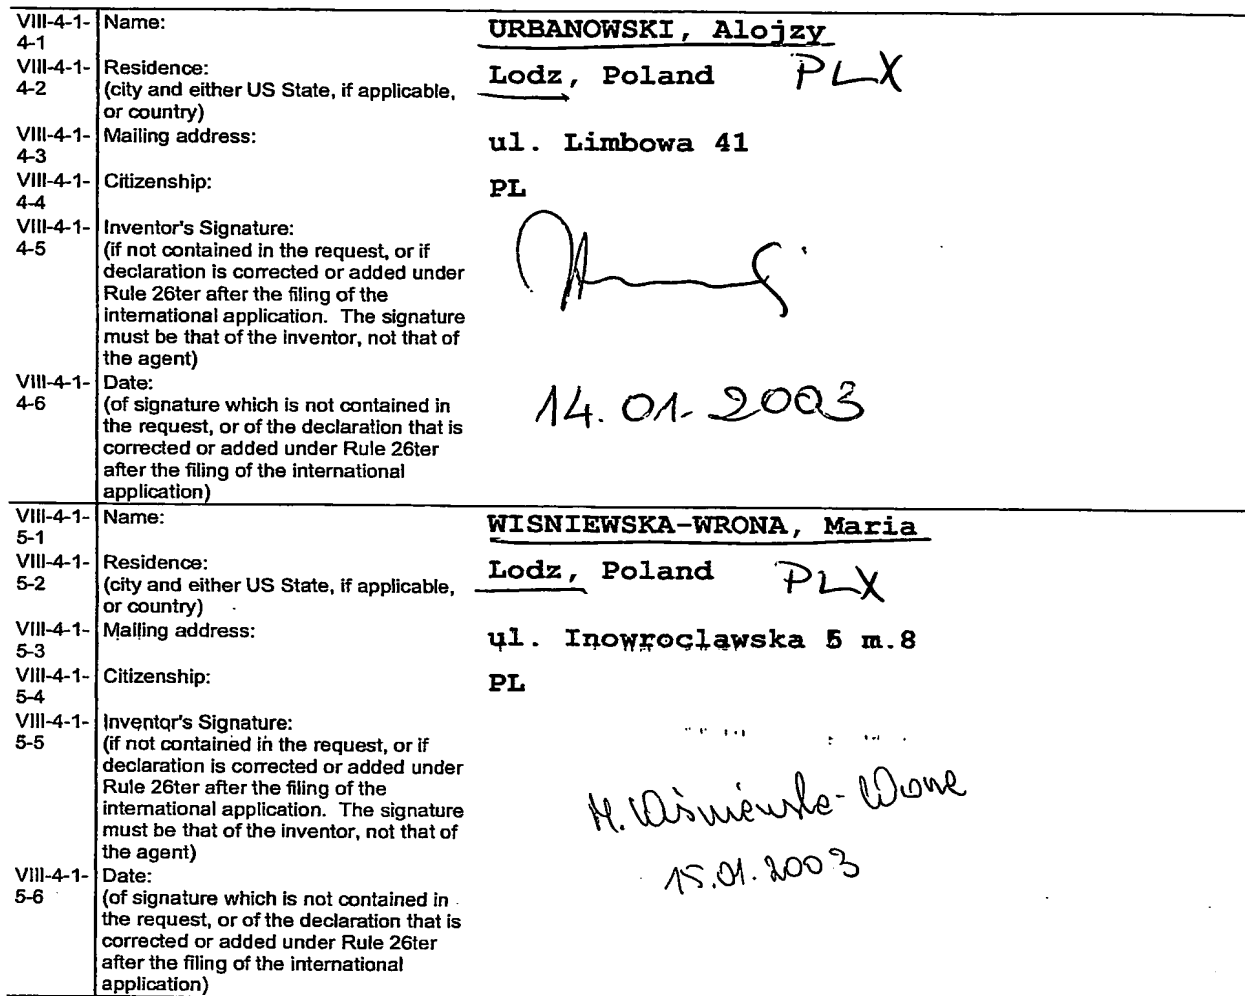 VIII-4-1-4-1 Name: URBANOWSKI, Alojzy
VIII-4-1-4-2 Residence: Lodz, Poland PLX
(city and either US State, if applicable,
or country)
VIII-4-1-4-3 Mailing address: ul. Limbowa 41
VIII-4-1-4-4 Citizenship: PL
VIII-4-1-4-5 Inventor's Signature:
(if not contained in the request, or if
declaration is corrected or added under
Rule 26ter after the filing of the
international application. The signature
must be that of the inventor, not that of
the agent)
VIII-4-1-4-6 Date: 14.01.2003
(of signature which is not contained in
the request, or of the declaration that is
corrected or added under Rule 26ter
after the filing of the international
application)
VIII-4-1-5-1 Name: WISNIEWSKA-WRONA, Maria
VIII-4-1-5-2 Residence: Lodz, Poland PLX
(city and either US State, if applicable,
or country)
VIII-4-1-5-3 Mailing address: ul. Inowroclawska 5 m.8
VIII-4-1-5-4 Citizenship: PL
VIII-4-1-5-5 Inventor's Signature:
(if not contained in the request, or if
declaration is corrected or added under
Rule 26ter after the filing of the
international application. The signature
must be that of the inventor, not that of
the agent)
M. Wiśniewska-Wrona
VIII-4-1-5-6 Date: 15.01.2003
(of signature which is not contained in
the request, or of the declaration that is
corrected or added under Rule 26ter
after the filing of the international
application)